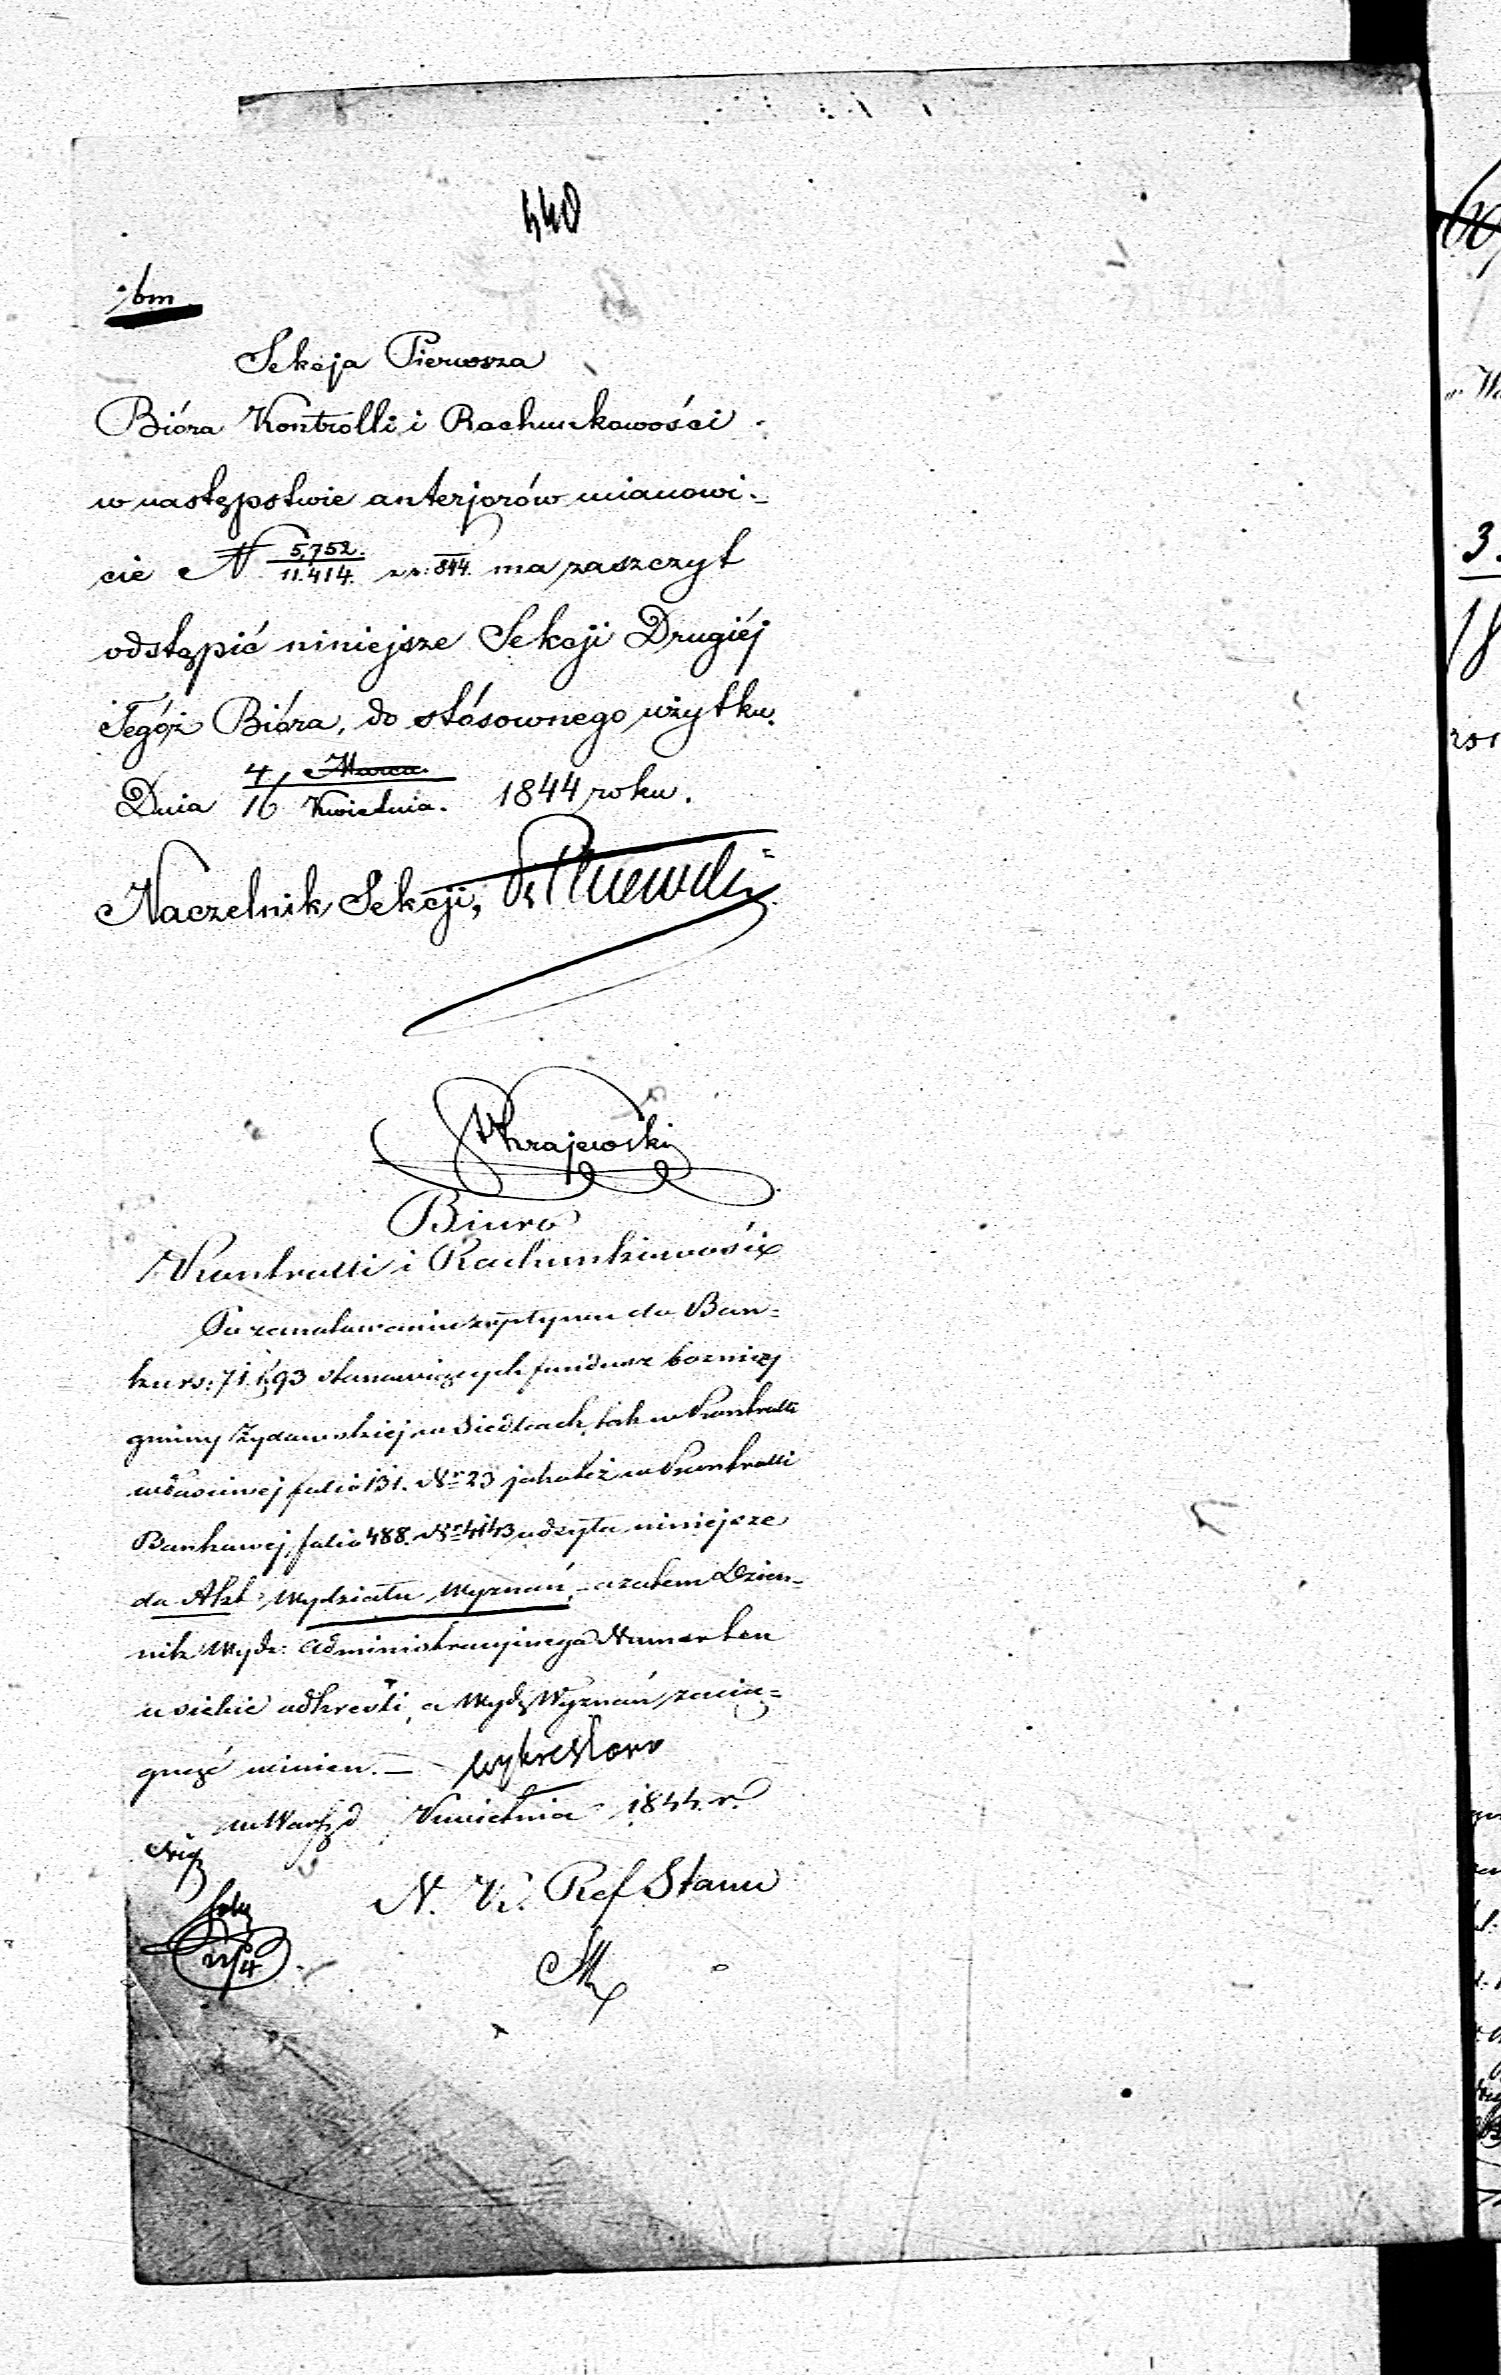 440
bm
Sekcja Pierwsza
Bióra Kontrolli i Rachunkowości
w następstwie anterjorów mianowi-
cie N 5,752./11.414. z r. 844. ma zaszczyt
odstąpić niniejsze Sekcji Drugiéj
Tegóż Bióra, do stósownego użytku.
Dnia 4/16 Marca/Kwietnia. 1844 roku.
Naczelnik Sekcji,
Krajewski
Biuro
Kontrolli i Rachunkowości
Po zanotowaniu wpływu do Ban-
ku rs: 71 k. 93 stanowiących fundusz bożnicy
gminy Żydowskiej w Siedlcach, tak w Kontrolli
właściwej folio 131. Nr 23 jakoteż w Kontrolli
Bankowej folio 488. Nr 4143 odsyła niniejsze
do Akt Wydziału Wyznań, - a zatem Dzien-
nik Wydz: Administracyjnego Numer ten
u siebie odkreśli, a Wydz Wyznań zacią-
gnąć winien. — wykreślono
w Warsz d Kwietnia 1844. r.
N. K. Ref Stanu
22/4